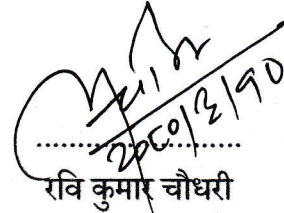 २०८०/३/१०
रवि कुमार चौधरी